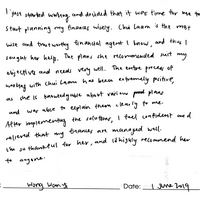 I just started working and decided that it was time for me to
start planning my finances wisely. Chui Laam is the most
wise and trustworthy financial agent I know, and thus I
sought her help. The plans she recommended suit my
objectives and needs very well. The entire process of
working with Chui Laam has been extremely positive,
as she is knowledgable about various good plans
and was able to explain them clearly to me.
After implementing the solutions, I feel confident and
relieved that my finances are managed well.
I'm so thankful for her, and I highly recommend her
to anyone.
: Wong Date: 1 June 2019